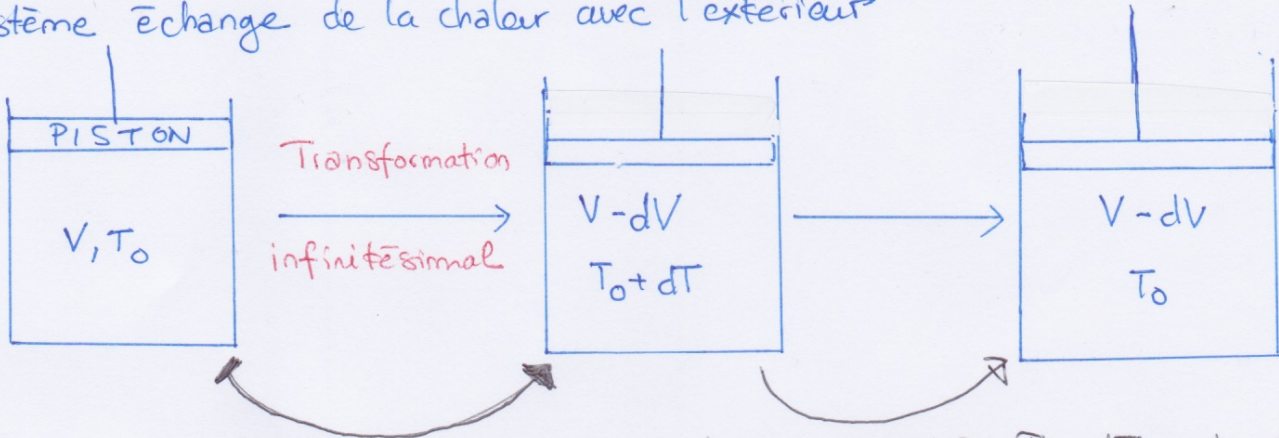 stème échange de la chaleur avec l'extérieur
PISTON
V, T₀
Transformation
infinitésimal
V-dV
T₀+dT
V-dV
T₀